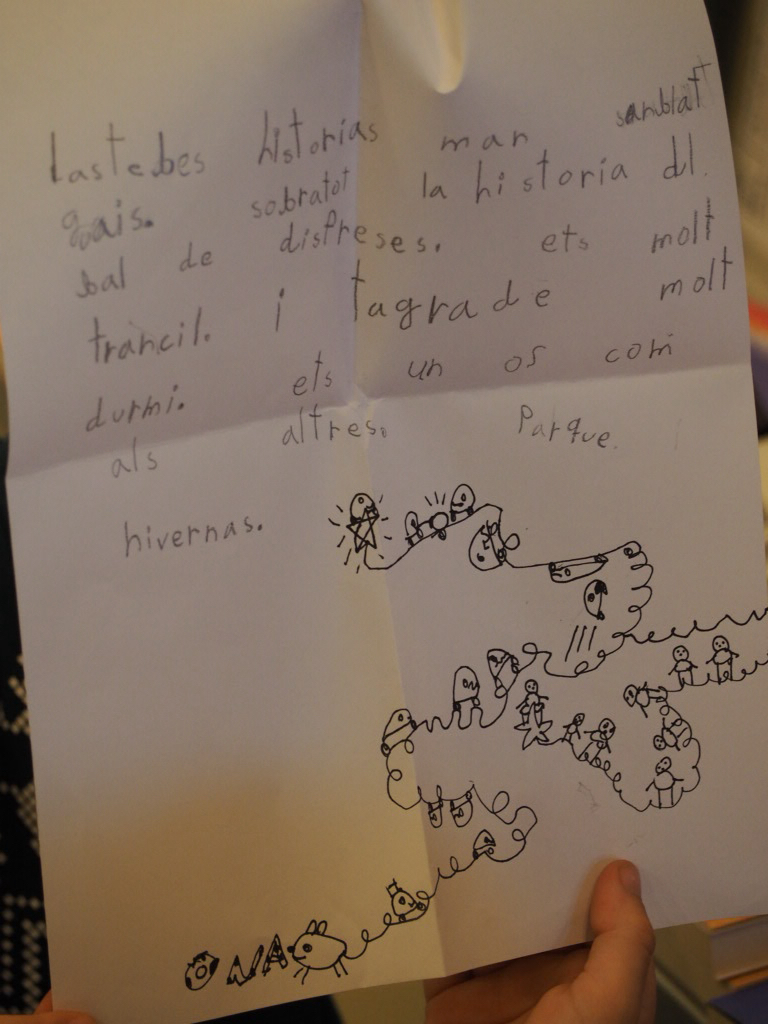 Las tebes historias man sambla T
gais. sobratot la historia dl.
bal de disfreses. ets molt
trancil. i tagrade molt
durmi. ets un os com
als altres. Parque.
hivernas.
ONA